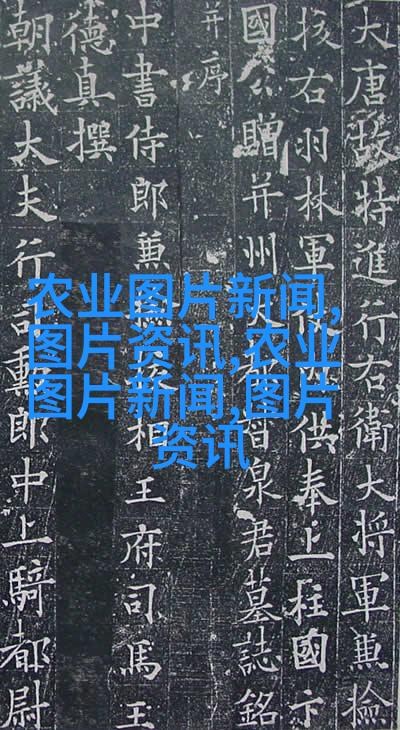 大唐故特進行右衛大將軍兼檢
校右羽林軍供奉上柱國卞
國公贈并州大都督泉君墓誌銘
并序
中書侍郎兼相王府司馬王
德真撰
朝議大夫行司勳郎中上騎都尉
农业图片新闻,
图片资讯,农业
图片新闻,图片
资讯